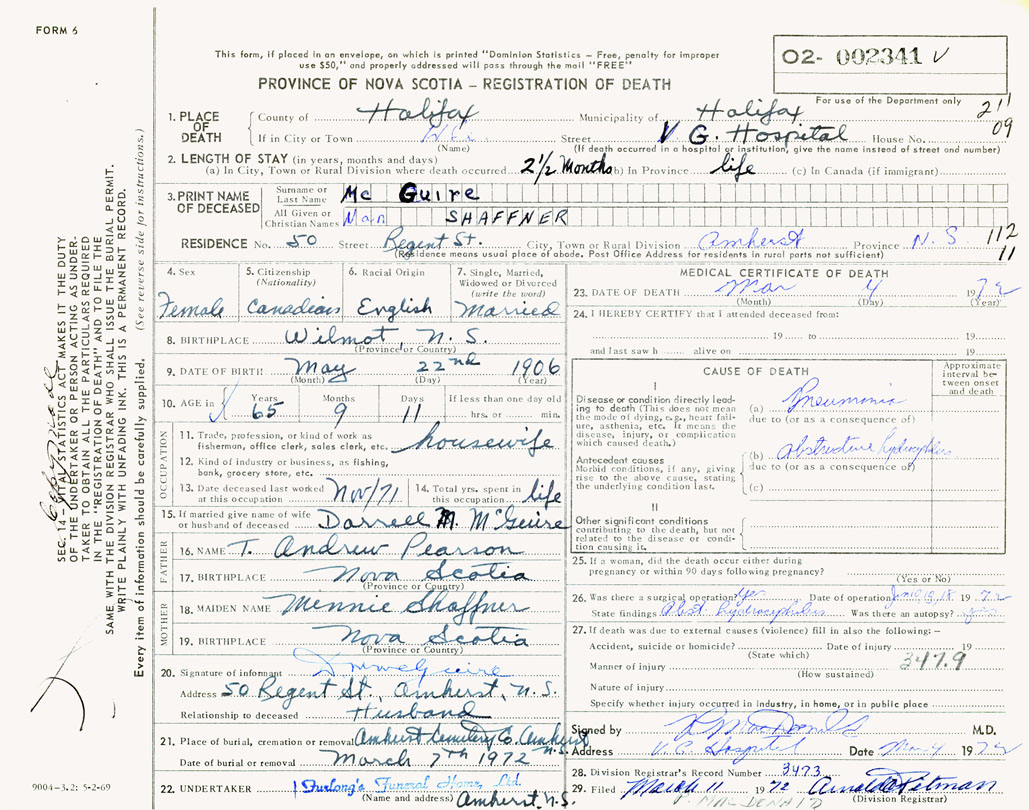 FORM 6
This form, if placed in an envelope, on which is printed "Dominion Statistics – Free, penalty for improper
use $50," and properly addressed will pass through the mail "FREE"
PROVINCE OF NOVA SCOTIA – REGISTRATION OF DEATH
O2- 002341 V
For use of the Department only
211
09
1. PLACE OF DEATH
County of Halifax Municipality of Halifax
If in City or Town Street V. G. Hospital House No.
(Name) (If death occurred in a hospital or institution, give the name instead of street and number)
2. LENGTH OF STAY (in years, months and days)
(a) In City, Town or Rural Division where death occurred 2 1/2 Months (b) In Province life (c) In Canada (if immigrant)
3. PRINT NAME OF DECEASED
Surname or Last Name Mc Guire
All Given or Christian Names SHAFFNER
RESIDENCE No. 50 Street Regent St. City, Town or Rural Division Amherst Province N. S 112
(Residence means usual place of abode. Post Office Address for residents in rural parts not sufficient) 11
4. Sex Female
5. Citizenship (Nationality) Canadian
6. Racial Origin English
7. Single, Married, Widowed or Divorced (write the word) Married
8. BIRTHPLACE Wilmot, N. S.
(Province or Country)
9. DATE OF BIRTH May 22nd 1906
(Month) (Day) (Year)
10. AGE in Years Months Days If less than one day
65 9 11 hrs. or min.
OCCUPATION
11. Trade, profession, or kind of work as
fisherman, office clerk, sales clerk, etc. housewife
12. Kind of industry or business, as fishing,
bank, grocery store, etc.
13. Date deceased last worked at this occupation Nov/71
14. Total yrs. spent in this occupation life
15. If married give name of wife
or husband of deceased Darrell M. McGuire
FATHER
16. NAME T. Andrew Pearson
17. BIRTHPLACE Nova Scotia
(Province or Country)
MOTHER
18. MAIDEN NAME Minnie Shaffner
19. BIRTHPLACE Nova Scotia
(Province or Country)
20. Signature of informant D M McGuire
Address 50 Regent St., Amherst, N. S.
Relationship to deceased Husband
21. Place of burial, cremation or removal Amherst Cemetery Co. Amherst N.S.
Date of burial or removal March 7th 1972
22. UNDERTAKER Furlong's Funeral Home, Ltd.
(Name and address) Amherst, N.S.
MEDICAL CERTIFICATE OF DEATH
23. DATE OF DEATH Mar 4 1972
(Month) (Day) (Year)
24. I HEREBY CERTIFY that I attended deceased from:
19 to 19
and last saw h alive on 19
CAUSE OF DEATH
Approximate interval between onset and death
I
Disease or condition directly leading to death (This does not mean
the mode of dying, e.g., heart failure, asthenia, etc. It means the
disease, injury, or complication
which caused death.)
(a) Pneumonia
due to (or as a consequence of)
Antecedent causes
Morbid conditions, if any, giving
rise to the above cause, stating
the underlying condition last.
(b) Obstructive hydrocephalus
due to (or as a consequence of)
(c)
II
Other significant conditions
contributing to the death, but not
related to the disease or condition causing it.
25. If a woman, did the death occur either during
pregnancy or within 90 days following pregnancy?
(Yes or No)
26. Was there a surgical operation? yes Date of operation 1972
State findings Obst hydrocephalus Was there an autopsy? yes
27. If death was due to external causes (violence) fill in also the following: –
Accident, suicide or homicide? Date of injury 19
(State which) 347.9
Manner of injury
(How sustained)
Nature of injury
Specify whether injury occurred in industry, in home, or in public place
Signed by R MacDonald M.D.
Address V. G. Hospital Date Mar 4 1972
28. Division Registrar's Record Number 3473
29. Filed March 11 1972
MACDONALD (Division Registrar)
SEC. 14 – VITAL STATISTICS ACT MAKES IT THE DUTY
OF THE UNDERTAKER OR PERSON ACTING AS UNDERTAKER TO OBTAIN ALL THE PARTICULARS REQUIRED
IN THE "REGISTRATION OF DEATH" AND TO FILE THE
SAME WITH THE DIVISION REGISTRAR WHO SHALL ISSUE THE BURIAL PERMIT.
WRITE PLAINLY WITH UNFADING INK. THIS IS A PERMANENT RECORD.
Every item of information should be carefully supplied. (See reverse side for instructions.)
9004–3.2: 5-2-69